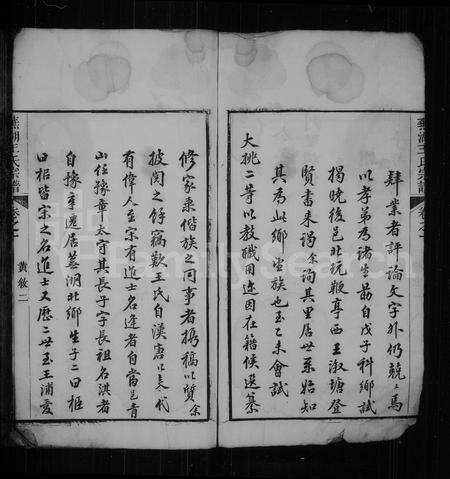 蕪湖王氏宗譜
卷之一
肄業者評論文字外仍兢兢焉
以孝弟為諸生勗自戊子科鄉試
揭曉後邑北玩鞭亭西王淑塘登
賢書來謁余詢其里居世系始知
其為北鄉望族也至乙未會試
大挑二等以教職用適因在籍候選纂
修家乘偕族之同事者携稿以質余
披閱之餘竊歎王氏自漢唐以來代
有偉人至宋有進士名逢者自當邑青
山任豫章太守其長子字長祖名淇者
自豫章遷居蕪湖北鄉生子二曰框
曰楉皆宋之名進士又歷二世至王浦爰
蕪湖王氏宗譜
卷之一
黃敘二
FamilySearch